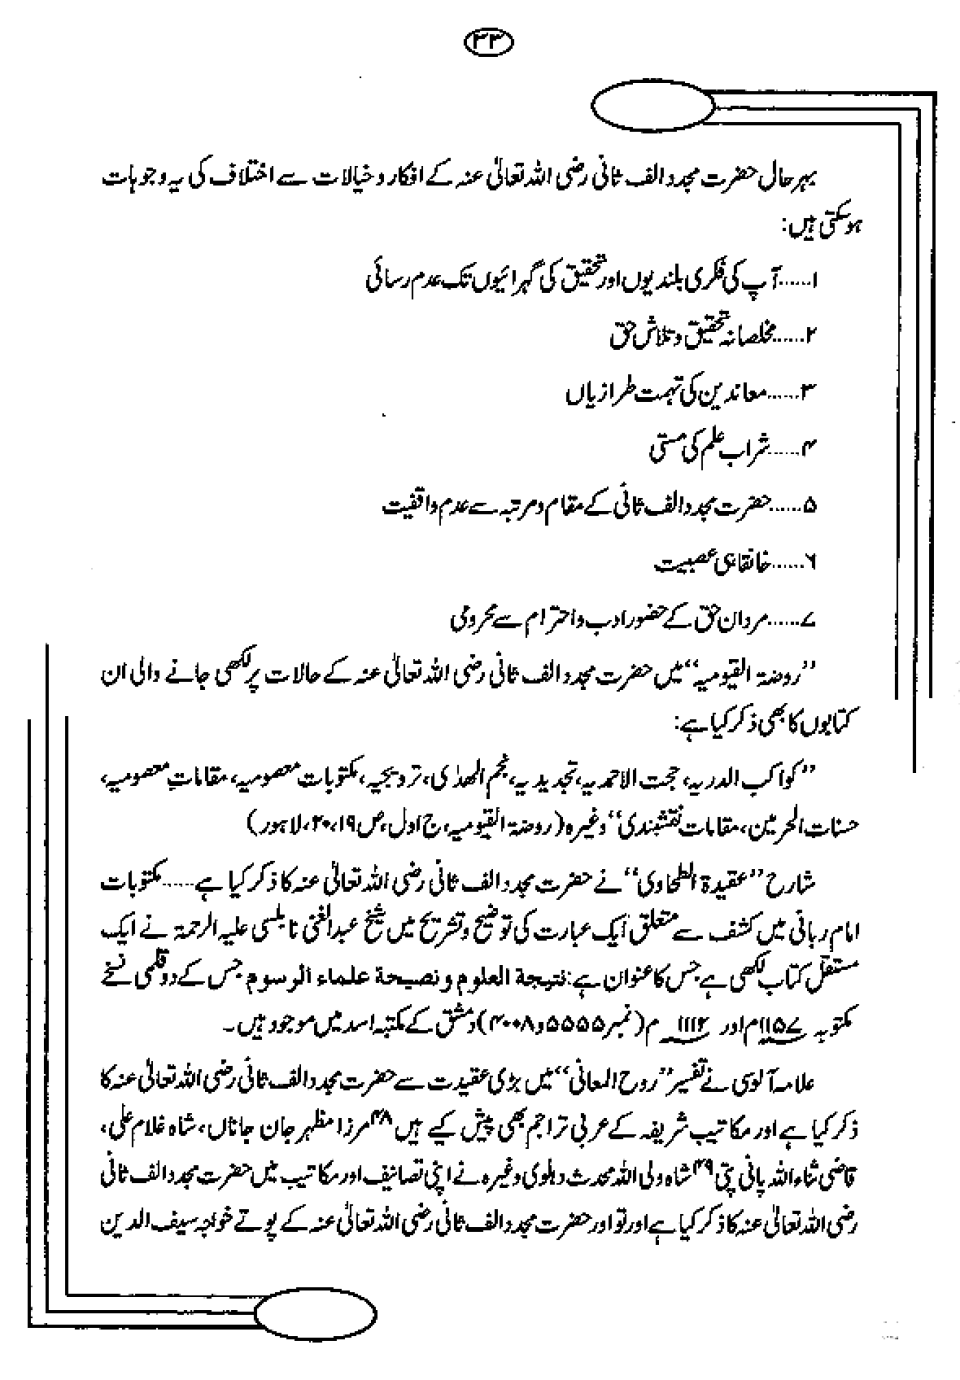 ۳۳
بہرحال حضرت مجدد الف ثانی رضی اللہ تعالیٰ عنہ کے افکار و خیالات سے اختلاف کی یہ وجوہات
ہوسکتی ہیں:
۱......آپ کی فکری بلندیوں اور تحقیق کی گہرائیوں تک عدم رسائی
۲......مخلصانہ تحقیق و تلاش حق
۳......معاندین کی تہمت طرازیاں
۴......شراب علم کی مستی
۵......حضرت مجدد الف ثانی کے مقام و مرتبہ سے عدم واقفیت
۶......خانقاہی عصبیت
۷......مردان حق کے حضور ادب و احترام سے محرومی
”روضۃ القیومیہ“ میں حضرت مجدد الف ثانی رضی اللہ تعالیٰ عنہ کے حالات پر لکھی جانے والی ان
کتابوں کا بھی ذکر کیا ہے:
”کواکب الدریہ، حجت الاحمدیہ، تجدیدیہ، نجم الھدٰی، ترویجیہ، مکتوبات معصومیہ، مقاماتِ معصومیہ،
حسنات الحرمین، مقامات نقشبندی“ وغیرہ (روضۃ القیومیہ، ج اول، ص ۱۹، ۲۰، لاہور)
شارح ”عقیدۃ الطحاوی“ نے حضرت مجدد الف ثانی رضی اللہ تعالیٰ عنہ کا ذکر کیا ہے......مکتوبات
امام ربانی میں کشف سے متعلق ایک عبارت کی توضیح و تشریح میں شیخ عبدالغنی نابلسی علیہ الرحمۃ نے ایک
مستقل کتاب لکھی ہے جس کا عنوان ہے: نتیجة العلوم و نصیحة علماء الرسوم جس کے دو قلمی نسخے
مکتوبہ ۱۱۵۷م اور ۱۱۱۲م (نمبر ۵۵۵۵ و ۴۰۰۸) دمشق کے مکتبہ اسد میں موجود ہیں۔
علامہ آلوسی نے تفسیر ”روح المعانی“ میں بڑی عقیدت سے حضرت مجدد الف ثانی رضی اللہ تعالیٰ عنہ کا
ذکر کیا ہے اور مکاتیب شریفہ کے عربی تراجم بھی پیش کیے ہیں ۴۸ مرزا مظہر جان جاناں، شاہ غلام علی،
قاضی ثناء اللہ پانی پتی ۴۹ شاہ ولی اللہ محدث دہلوی وغیرہ نے اپنی تصانیف اور مکاتیب میں حضرت مجدد الف ثانی
رضی اللہ تعالیٰ عنہ کا ذکر کیا ہے اور تو اور حضرت مجدد الف ثانی رضی اللہ تعالیٰ عنہ کے پوتے خواجہ سیف الدین